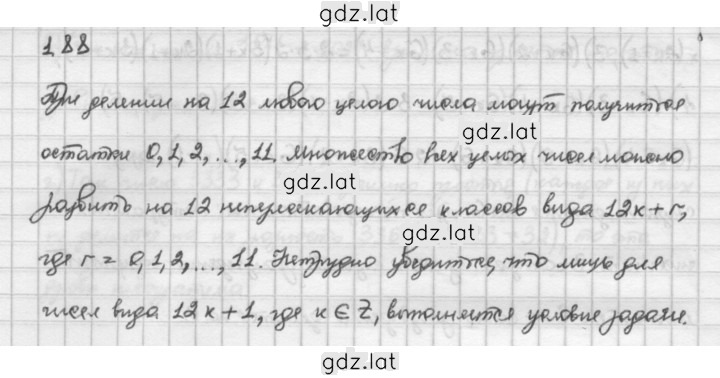 gdz.lat
188
При делении на 12 любого целого числа могут получиться
gdz.lat
остатки 0, 1, 2, ..., 11. Множество всех целых чисел можно
gdz.lat
разбить на 12 непересекающихся классов вида 12k + r,
gdz.lat
где r = 0, 1, 2, ..., 11. Нетрудно убедиться, что лишь для
gdz.lat
чисел вида 12k + 1, где k ∈ Z, выполняется условие задачи.
gdz.lat